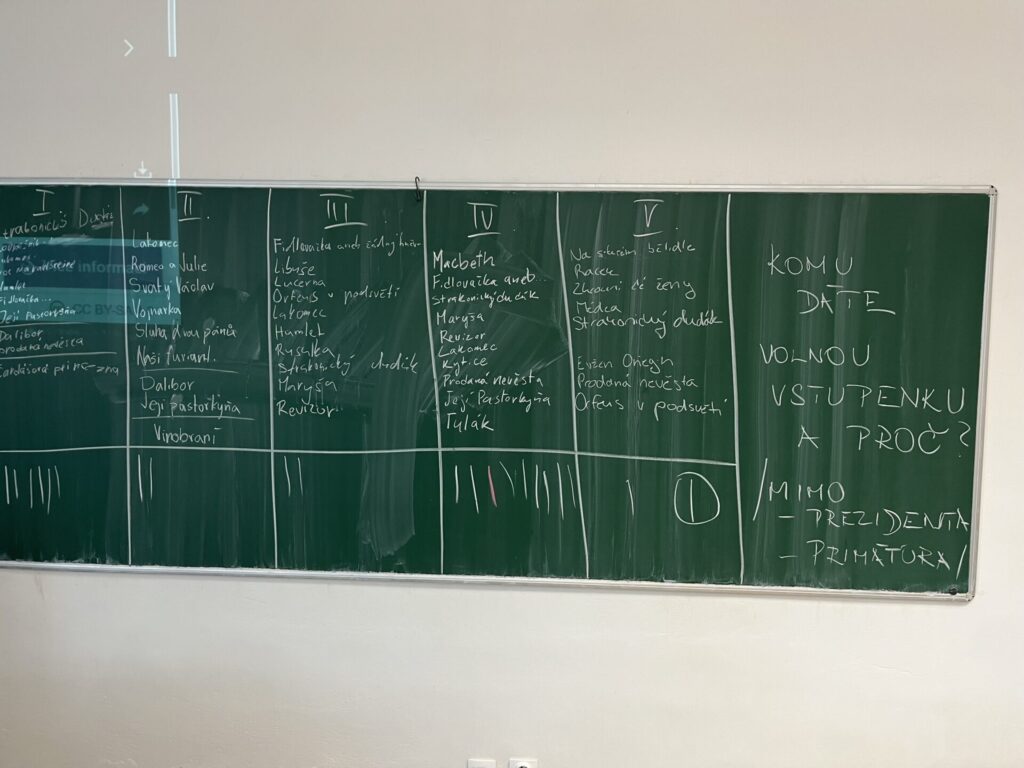 I
Strakonický Dudák
Hamlet
Fidlovačka...
Její Pastorkyňa
Dalibor
prodaná nevěsta
II.
Lakomec
Romeo a Julie
Svatý Václav
Vojnarka
Sluha dvou pánů
Naši furianti
Dalibor
Její pastorkyňa
Vinobraní
III
Fidlovačka aneb žádný hněv
Libuše
Lucerna
Orfeus v podsvětí
Lakomec
Hamlet
Rusalka
Strakonický dudák
Maryša
Revizor
IV
Macbeth
Fidlovačka aneb...
Strakonický dudák
Maryša
Revizor
Lakomec
Kytice
Prodaná nevěsta
Její Pastorkyňa
Tulák
V
Na starém bělidle
Racek
ženy
Médea
Strakonický dudák
Evžen Oněgin
Prodaná nevěsta
Orfeus v podsvětí
1
KOMU
DÁTE
VOLNOU
VSTUPENKU
A PROČ?
/MIMO
- PREZIDENTA
- PRIMÁTORA/
information
CC BY-SA